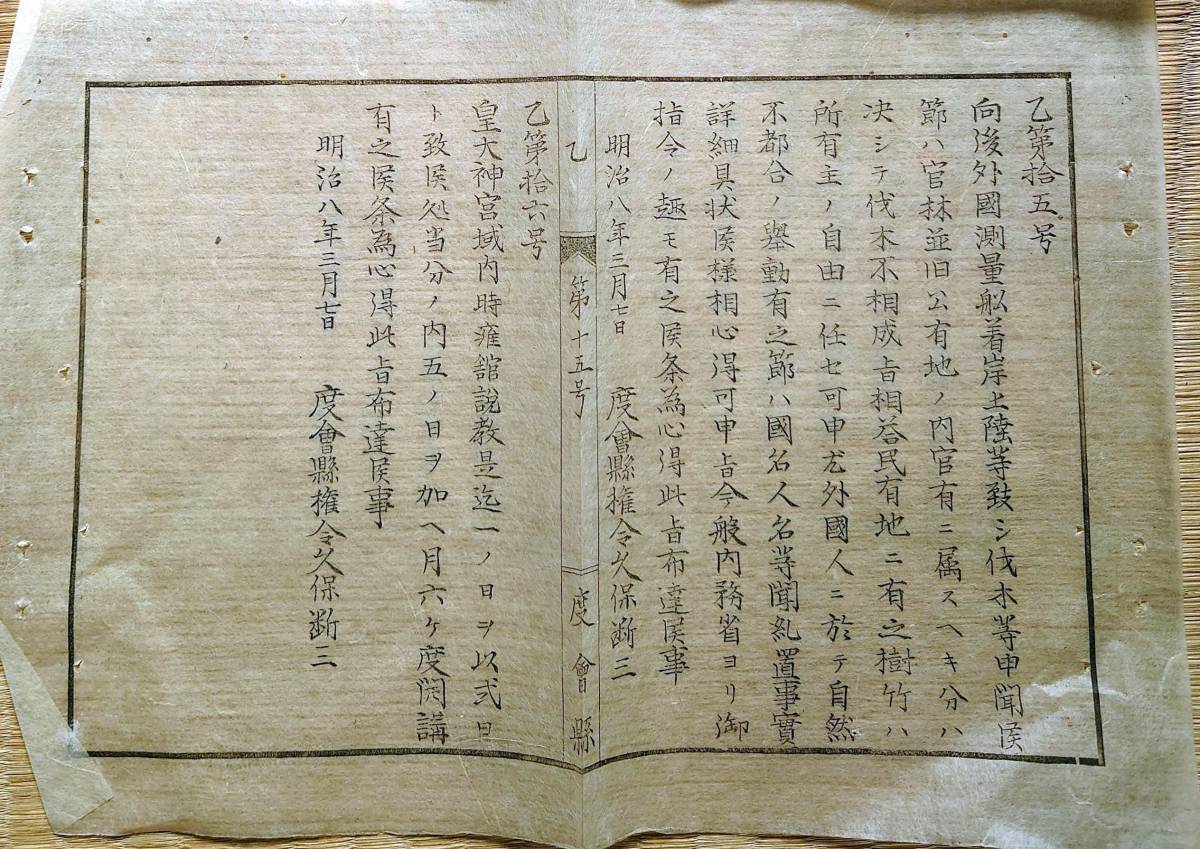 乙第拾五号
向後外國測量舩着岸上陸等致シ伐木等申聞候
節ハ官林並旧公有地ノ内官有ニ属スヘキ分ハ
决シテ伐木不相成旨相荅民有地ニ有之樹竹ハ
所有主ノ自由ニ任セ可申尤外國人ニ於テ自然
不都合ノ舉動有之節ハ國名人名等聞糺置事實
詳細具状候様相心得可申旨今般内務省ヨリ御
指令ノ趣モ有之候条為心得此旨布達候事
明治八年三月七日　度會縣権令久保断三
乙　第十五号　度會縣
乙第拾六号
皇大神宮域内時雍舘說教是迄一ノ日ヲ以式日
ト致候处当分ノ内五ノ日ヲ加ヘ月六ケ度開講
有之候条為心得此旨布達候事
明治八年三月七日　度會縣権令久保断三